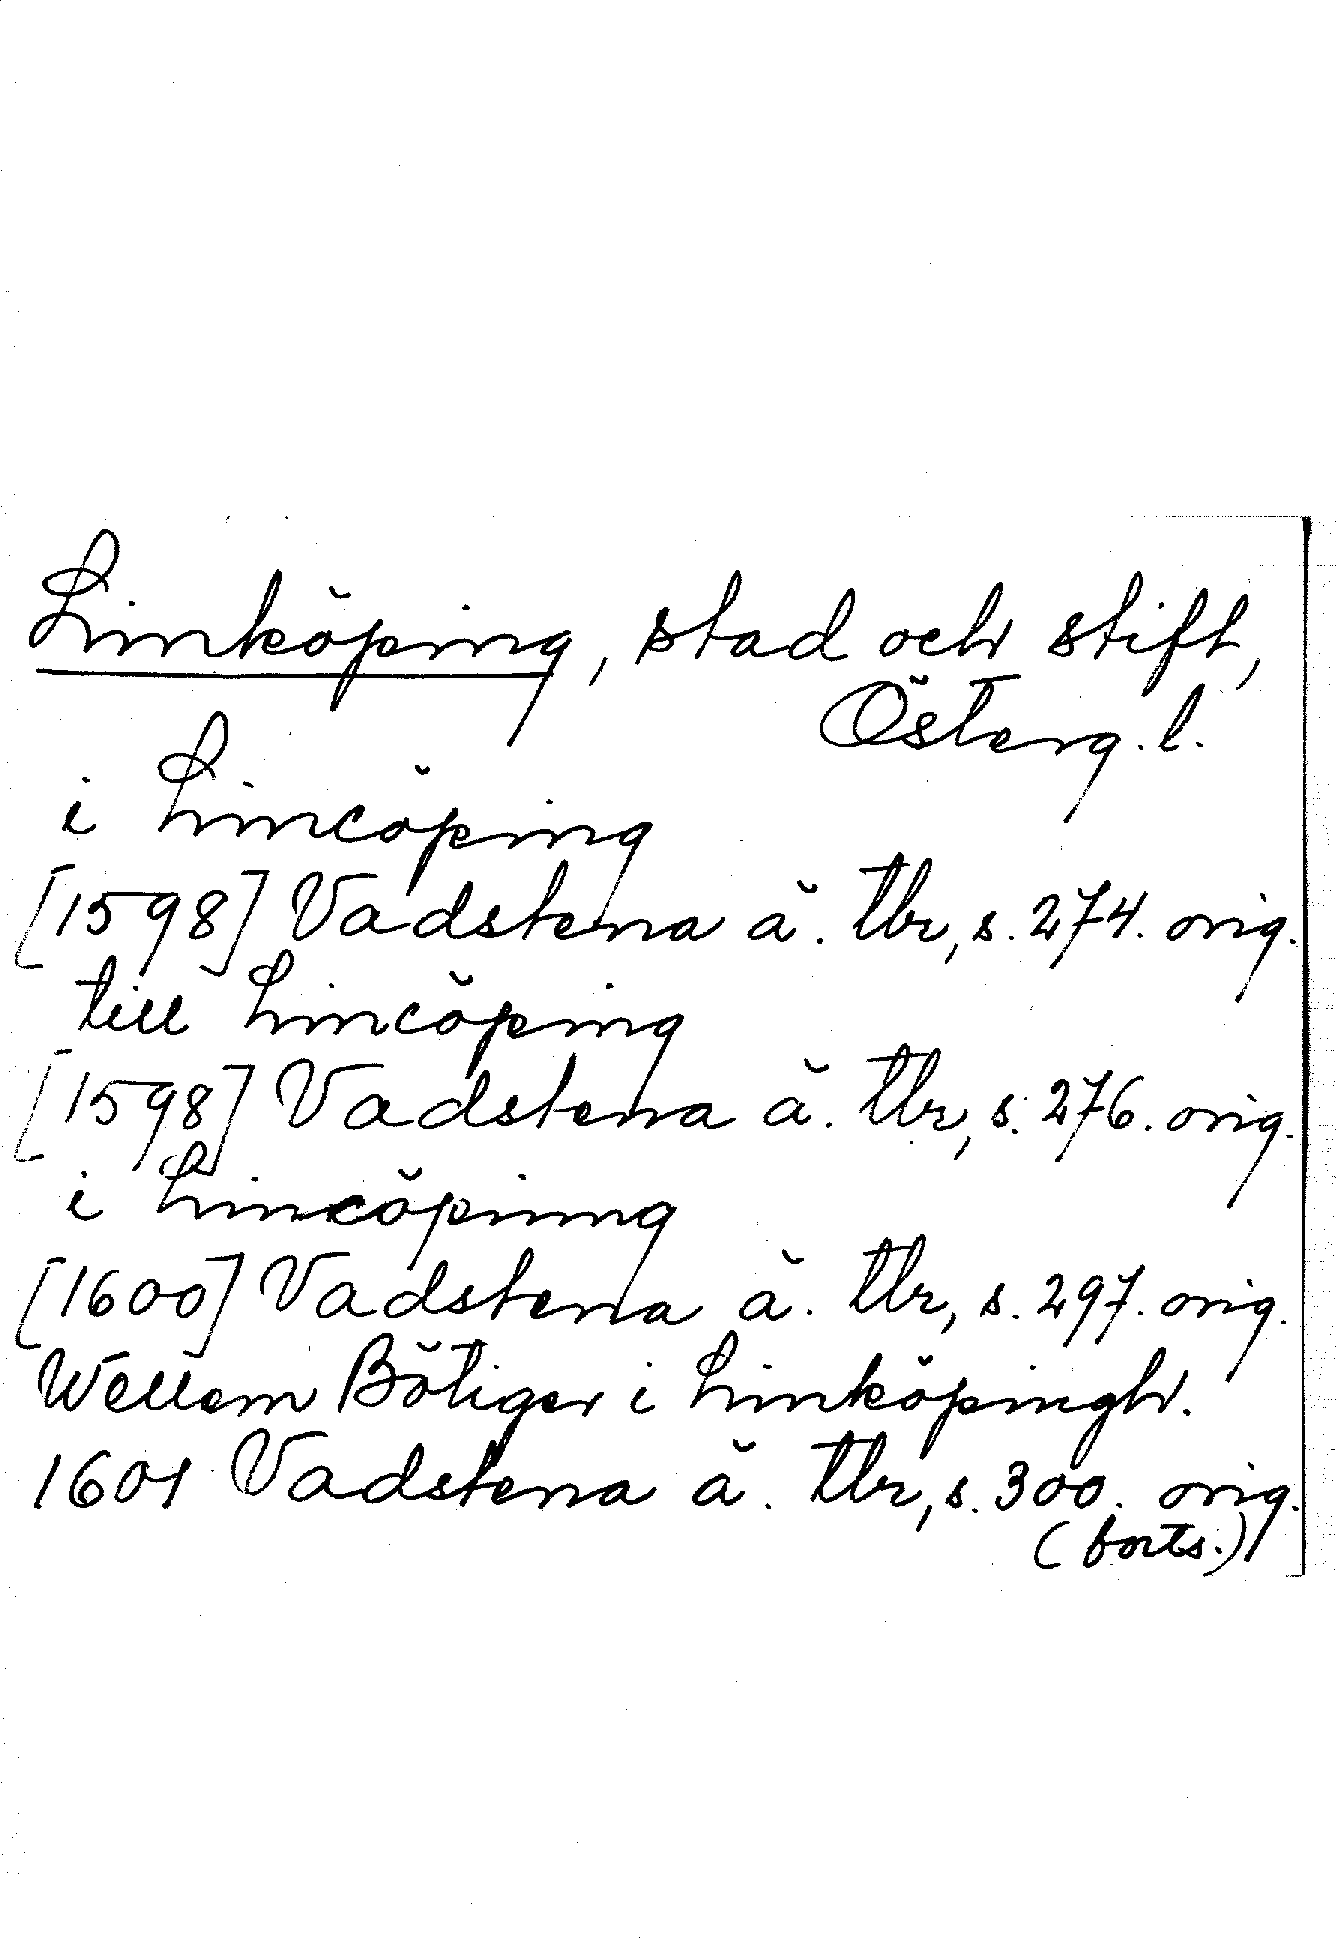 Linköping, stad och stift,
Österg. l.
i Lincöping
[1598] Vadstena ä. tbr, s. 274. orig.
till Lincöping
[1598] Vadstena ä. tbr, s. 276. orig.
i Lincöping
[1600] Vadstena ä. tbr, s. 297. orig.
Wellem Bötiger i Linköpingh.
1601 Vadstena ä. tbr, s. 300. orig.
(forts.)